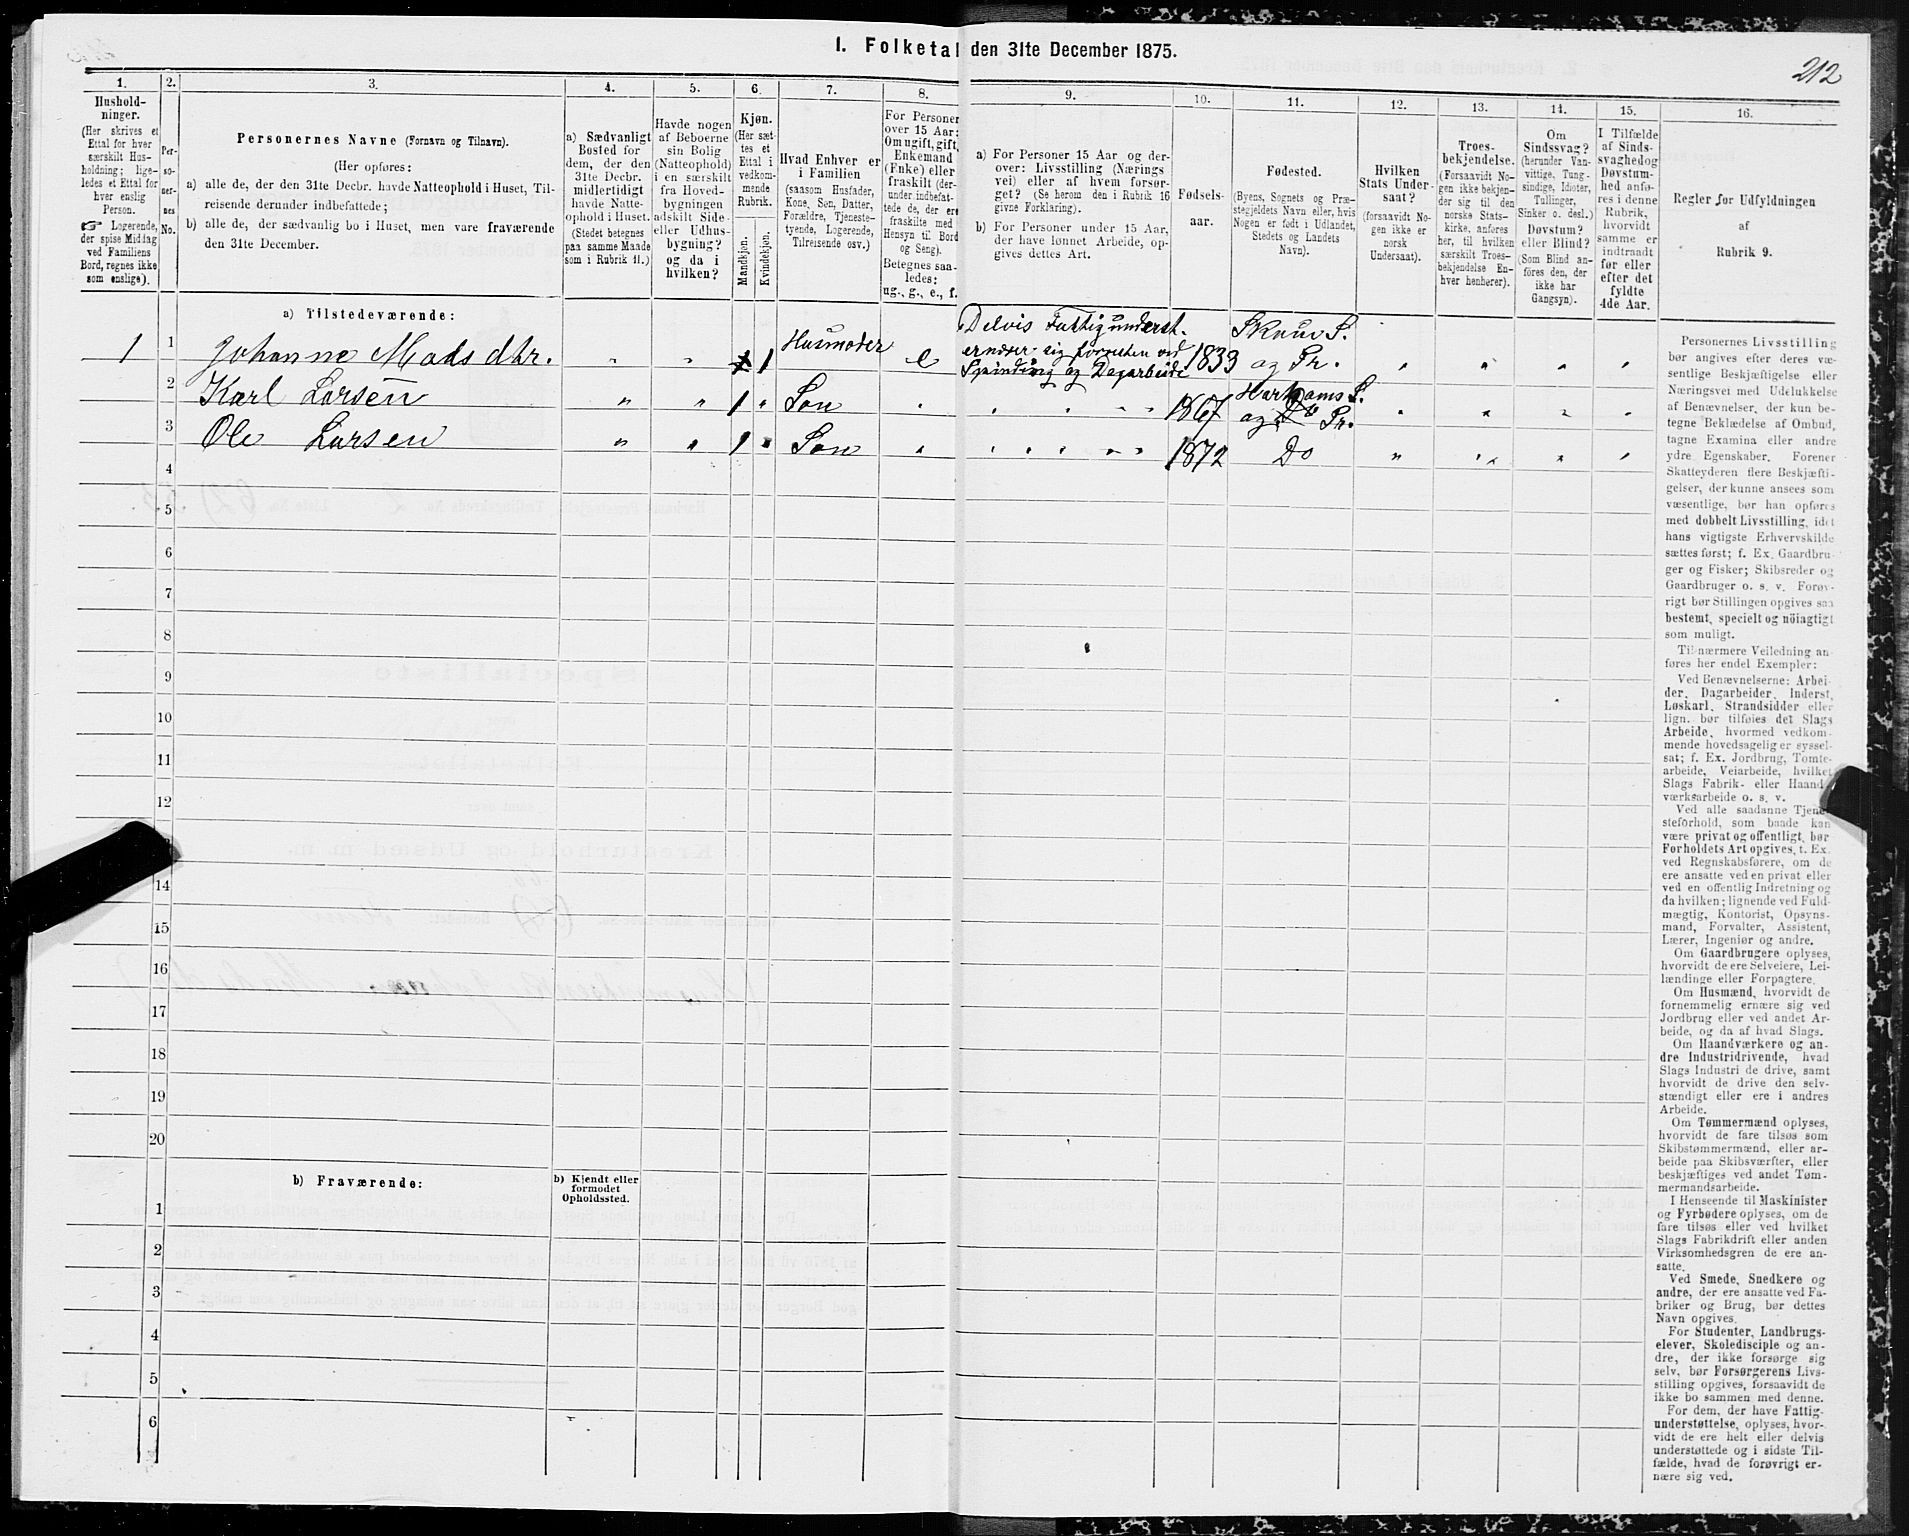 I. Folketal den 31te December 1875.
212
1.
2.
3.
4.
5.
6.
7.
8.
9.
10.
11.
12.
13.
14.
15.
16.
Hushold-
ninger.
(Her skrives et
Ettal for hver
særskilt Hus-
holdning; lige-
ledes et Ettal for
hver enslig
Person.
☞ Logerende,
der spise Middag
ved Familiens
Bord, regnes ikke
som enslige).
Per-
so-
ner-
nes
No.
Personernes Navne (Fornavn og Tilnavn).
(Her opføres:
a) alle de, der den 31te Decbr. havde Natteophold i Huset, Til-
reisende derunder indbefattede;
b) alle de, der sædvanlig bo i Huset, men vare fraværende
den 31te December.
a) Sædvanligt
Bosted for
dem, der den
31te Decbr.
midlertidigt
havde Natte-
ophold i Huset.
(Stedet betegnes
paa samme Maade
som i Rubrik 11.)
Havde nogen
af Beboerne
sin Bolig
(Natteophold)
i en særskilt
fra Hoved-
bygningen
adskilt Side-
eller Udhus-
bygning?
og da i
hvilken?
Kjøn.
(Her sæt-
tes et
Ettal i
vedkom-
mende
Rubrik.
Mandkjøn.
Kvindekjøn.
Hvad Enhver er
i Familien
(saasom Husfader,
Kone, Søn, Datter,
Forældre, Tjeneste-
tyende, Logerende,
Tilreisende osv.)
For Personer
over 15 Aar:
Om ugift, gift,
Enkemand
(Enke) eller
fraskilt (der-
under indbefat-
tede de, der ere
fraskilte med
Hensyn til Bord
og Seng).
Betegnes saa-
ledes:
ug., g., e., f.
a) For Personer 15 Aar og der-
over: Livsstilling (Nærings
vei) eller af hvem forsør-
get? (Se herom den i Rubrik 16
givne Forklaring).
b) For Personer under 15 Aar,
der have lønnet Arbeide, op-
gives dettes Art.
Fødsels-
aar.
Fødested.
(Byens, Sognets og Præ-
stegjeldets Navn eller, hvis
Nogen er født i Udlandet,
Stedets og Landets
Navn).
Hvilken
Stats Under-
saat?
(forsaavidt No-
gen ikke er
norsk
Undersaat).
Troes-
bekjendelse.
(Forsaavidt No-
gen ikke bekjen-
der sig til den
norske Stats-
kirke, anføres
her, til hvilken
særskilt Troes-
bekjendelse En-
hver henhører).
Om
Sindssvag?
(herunder Van-
vittige, Tung-
sindige, Idioter,
Tullinger,
Sinker o. desl.)
Døvstum?
eller Blind?
(Som Blind an-
føres den, der
ikke har
Gangsyn).
I Tilfælde
af Sinds-
svaghed og
Døvstum-
hed anfø-
res i denne
Rubrik,
hvorvidt
samme er
indtraadt
før eller
efter det
fyldte
4de Aar.
Regler for Udfyldningen
af
Rubrik 9.
a) Tilstedeværende:
1 1 Johanne Madsdtr. " " 1 Husmoder e Delvis Fattigunderst. ernærer sig forresten ved Spinding og Dagarbeide 1833 Skoue S. og Pr. " " " "
2 Karl Larsen " " 1 " Søn " " " " " 1867 Harhams S. og Pr. " " " "
3 Ole Larsen " " 1 " Søn " " " " " 1872 Do " " " "
4
5
6
7
8
9
10
11
12
14
15
16
17
18
19
20
b) Fraværende:
b) Kjendt eller
formodet
Opholdssted.
1
2
3
4
5
6
Personernes Livsstilling
bør angives efter deres væ-
sentlige Beskjæftigelse eller
Næringsvei med Udelukkelse
af Benævnelser, der kun be-
tegne Beklædelse af Ombud,
tagne Examina eller andre
ydre Egenskaber. Forener
Skatteyderen flere Beskjæfti-
gelser, der kunne ansees som
væsentlige, bør han opføres
med dobbelt Livsstilling, idet
hans vigtigste Erhvervskilde
sættes først; f. Ex. Gaardbru-
ger og Fisker; Skibsreder og
Gaardbruger o. s. v. Forøv-
rigt bør Stillingen opgives saa
bestemt, specielt og nöiagtigt
som muligt.
Til nærmere Veiledning an-
føres her endel Exempler:
Ved Benævnelserne: Arbei-
der, Dagarbeider, Inderst,
Løskarl, Strandsidder eller
lign. bør tilføies det Slags
Arbeide, hvormed vedkom-
mende hovedsagelig er syssel-
sat; f. Ex. Jordbrug, Tomte-
arbeide, Veiarbeide, hvilket
Slags Fabrik- eller Haand-
værksarbeide o. s. v.
Ved alle saadanne Tjene-
steforhold, som baade kan
være privat og offentligt, bør
Forholdets Art opgives, t. Ex.
ved Regnskabsførere, om de
ere ansatte ved en privat eller
ved en offentlig Indretning og
da hvilken; lignende ved Fuld-
mægtig, Kontorist, Opsyns-
mand, Forvalter, Assistent,
Lærer, Ingeniør og andre.
Om Gaardbrugere oplyses,
hvorvidt de ere Selveiere, Lei-
lændinge eller Forpagtere.
Om Husmænd, hvorvidt de
fornemmelig ernære sig ved
Jordbrug eller ved andet Ar-
beide, og da af hvad Slags.
Om Haandværkere og an-
dre Industridrivende, hvad
Slags Industri de drive, samt
hvorvidt de drive den selv-
stændigt eller ere i andres
Arbeide.
Om Tømmermænd oplyses,
hvorvidt de fare tilsøs som
Skibstømmermænd, eller ar-
beide paa Skibsværfter, eller
beskjæftiges ved andet Tøm-
mermandsarbeide.
I Henseende til Maskinister
og Fyrbødere oplyses, om de
fare tilsøs eller ved hvilket
Slags Fabrikdrift eller anden
Virksomhedsgren de ere an-
satte.
Ved Smede, Snedkere og
andre, der ere ansatte ved Fa-
briker og Brug, bør dettes
Navn opgives.
For Studenter, Landbrugs-
elever, Skoledisciple og an-
dre, der ikke forsørge sig
selv, bør Forsørgerens Livs-
stilling opgives, forsaavidt de
ikke bo sammen med denne.
For dem, der have Fattig-
understøttelse, oplyses, hvor-
vidt de ere helt eller delvis
understøttede og i sidste Til-
fælde, hvad de forøvrigt er-
nære sig ved.